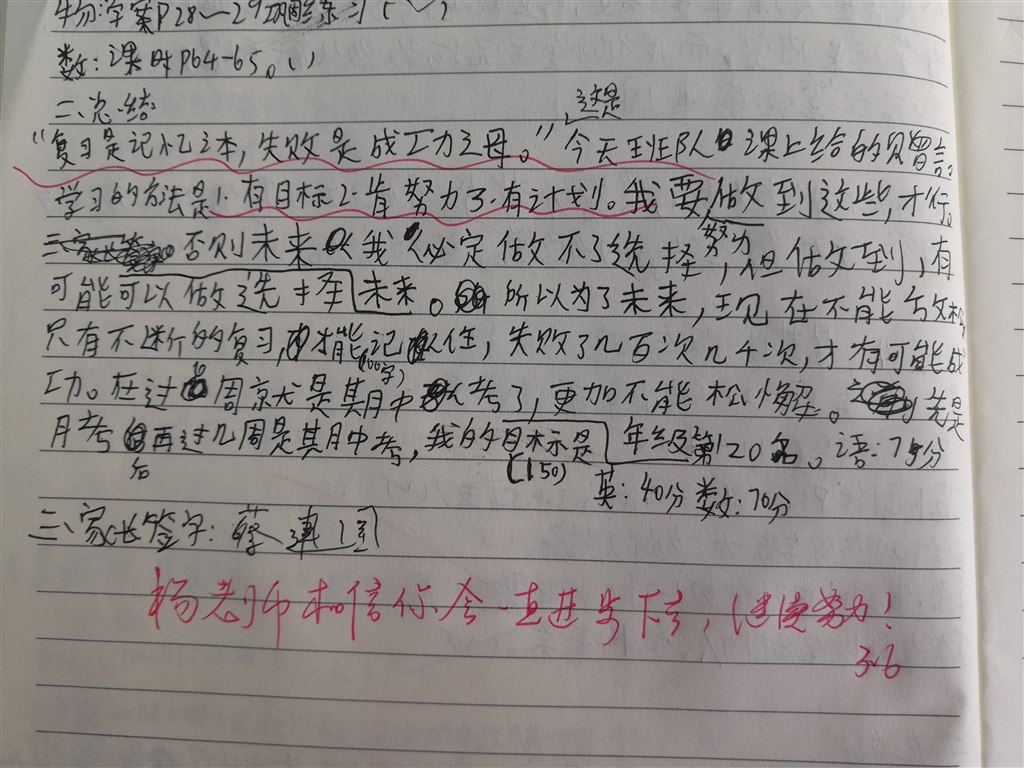 物:学案P28～29巩固练习(～)
数:课时P64-65。(,)
二、总结
这是
"复习是记忆之本,失败是成工力之母。"今天班队课上给的留言。
学习的方法是1.有目标2.肯努力3.有计划。我要做到这些,才行。
努力
三、否则未来我必定做不了选择,但做到,有
可能可以做选择未来。所以为了未来,现在不能放松
只有不断的复习,才能记住,失败了几百次几千次,才有可能成
(100字)
工力。在过周就是其月中考了,更加不能松懈。先是
月考再过几周是其月中考,我的目标是年级第120名。语:75分
后
(150)
英:40分 数:70分
三、家长签字:蔡建国
杨老师相信你会一直进步下去,继续努力!
3.6